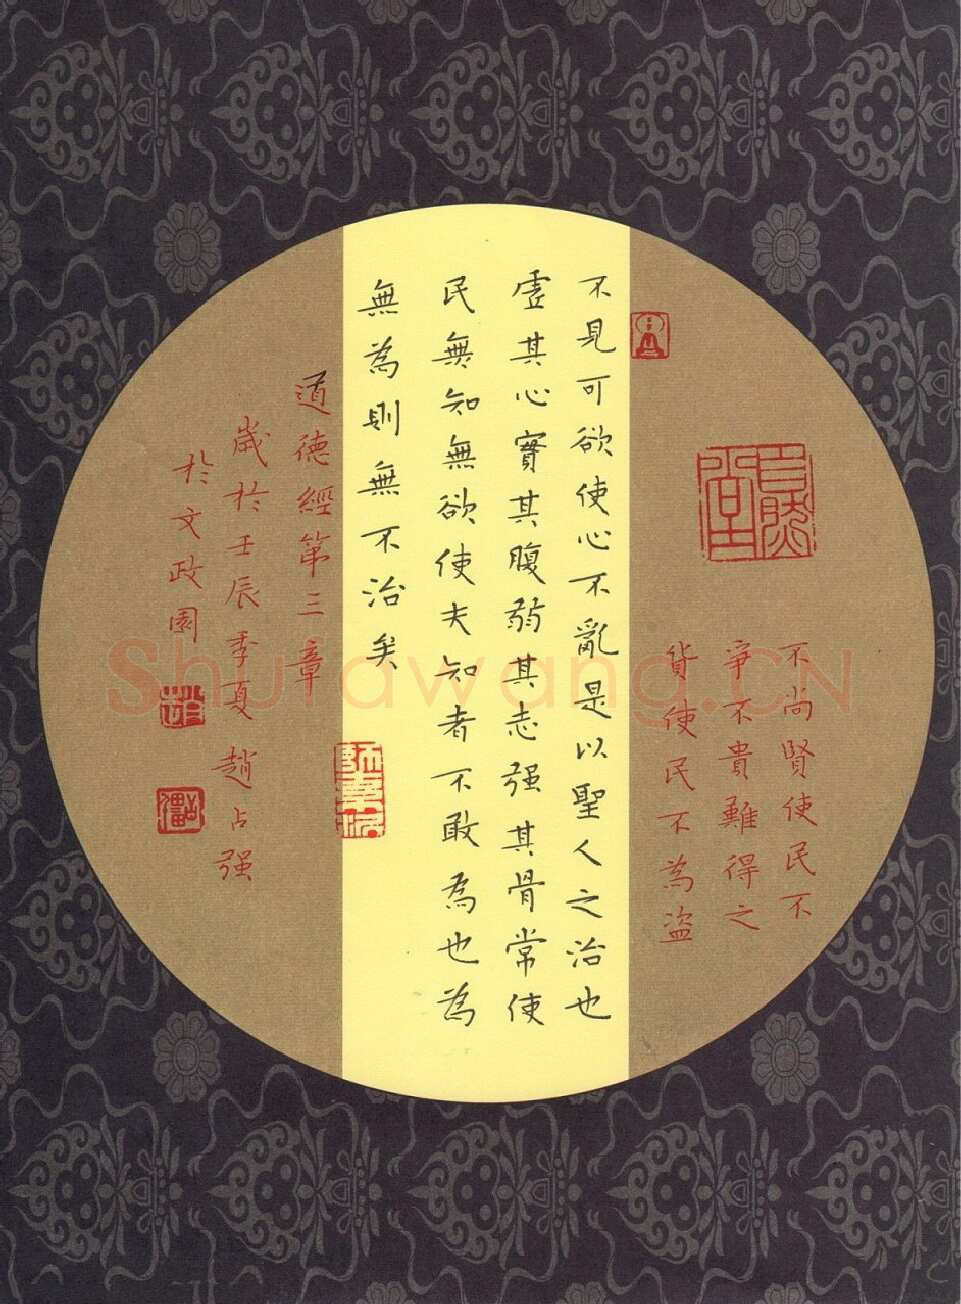 不尚賢使民不
爭不貴難得之
貨使民不為盜
不見可欲使心不亂是以聖人之治也
虛其心實其腹弱其志强其骨常使
民無知無欲使夫知者不敢為也為
無為則無不治矣
道德經第三章
歲於壬辰季夏趙占强
於文政園
Shufawang.CN